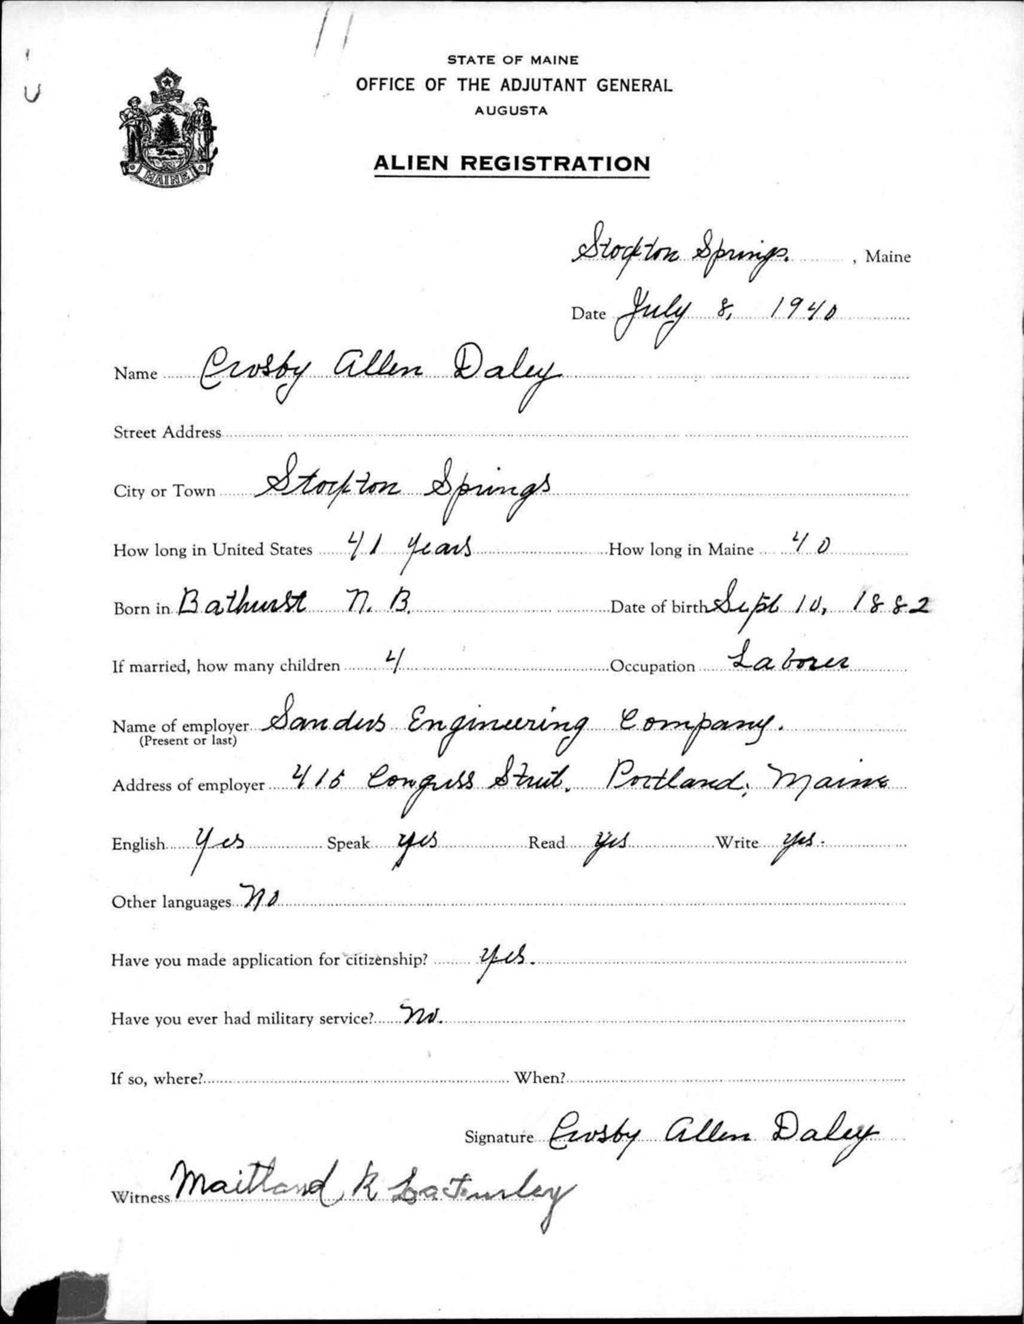 STATE OF MAINE
OFFICE OF THE ADJUTANT GENERAL
AUGUSTA
ALIEN REGISTRATION
MAINE
Stockton Springs, Maine
Date July 8, 1940
Name Crosby Allen Daley
Street Address
City or Town Stockton Springs
How long in United States 41 years How long in Maine 40
Born in Bathurst N. B. Date of birth Sept 10, 1882
If married, how many children 4 Occupation Laborer
Name of employer Sanders Engineering Company.
(Present or last)
Address of employer 415 Congress Street, Portland, Maine
English Yes Speak yes Read Yes Write yes.
Other languages No
Have you made application for citizenship? yes.
Have you ever had military service? No.
If so, where? When?
Signature Crosby Allen Daley
Witness Maitland R